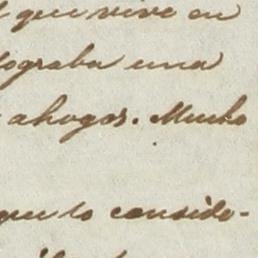 que vive en
lograba una
ahogos. Mucho
que lo conside-